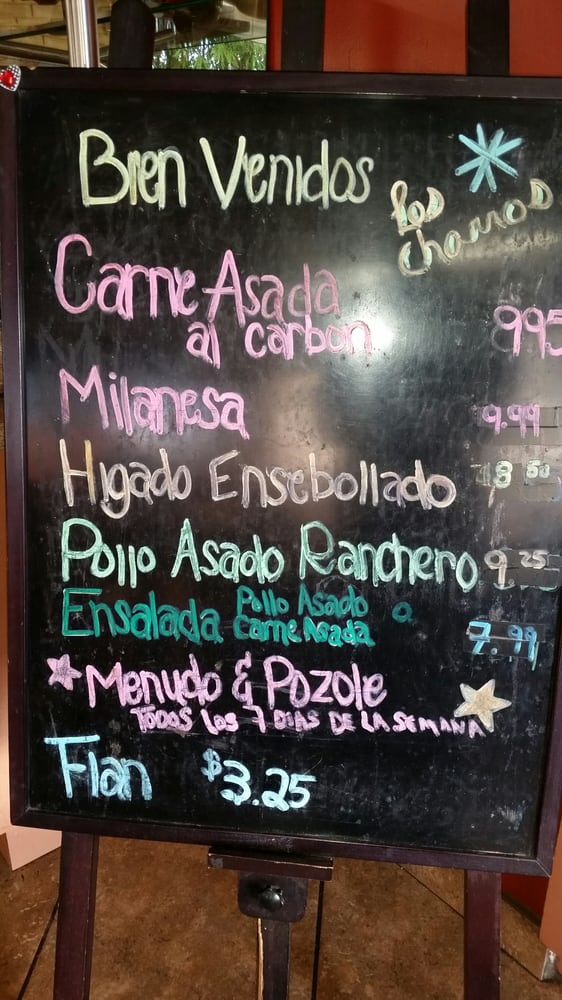 Bien Venidos
Los
Charros
Carne Asada
al carbon 995
Milanesa 9.99
Higado Ensebollado $8 50
Pollo Asado Ranchero 9.25
Ensalada Pollo Asado o
Carne Asada 7.99
Menudo & Pozole
TODOS LOS 7 DIAS DE LA SEMANA
Flan $3.25